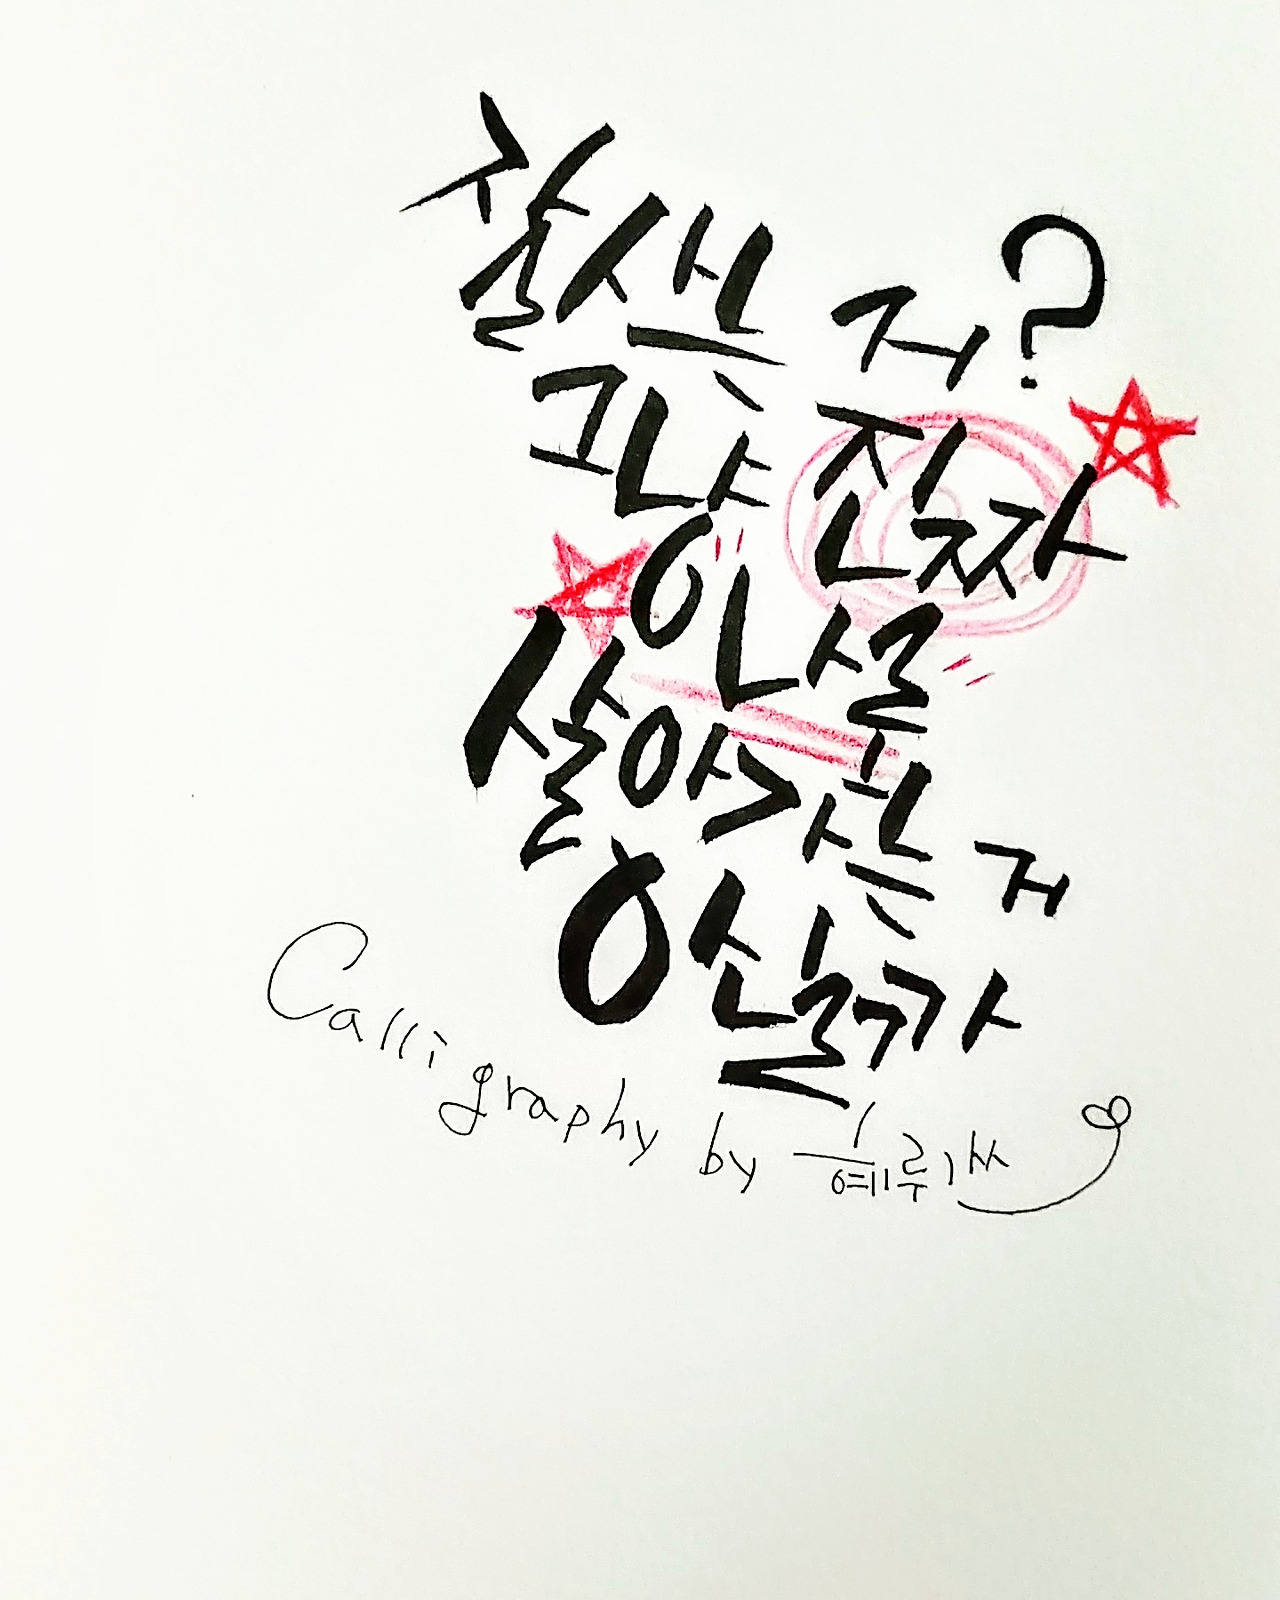 잘 사는 거?
그냥 진짜
나로
살아가는 거
아닐까
Calligraphy by